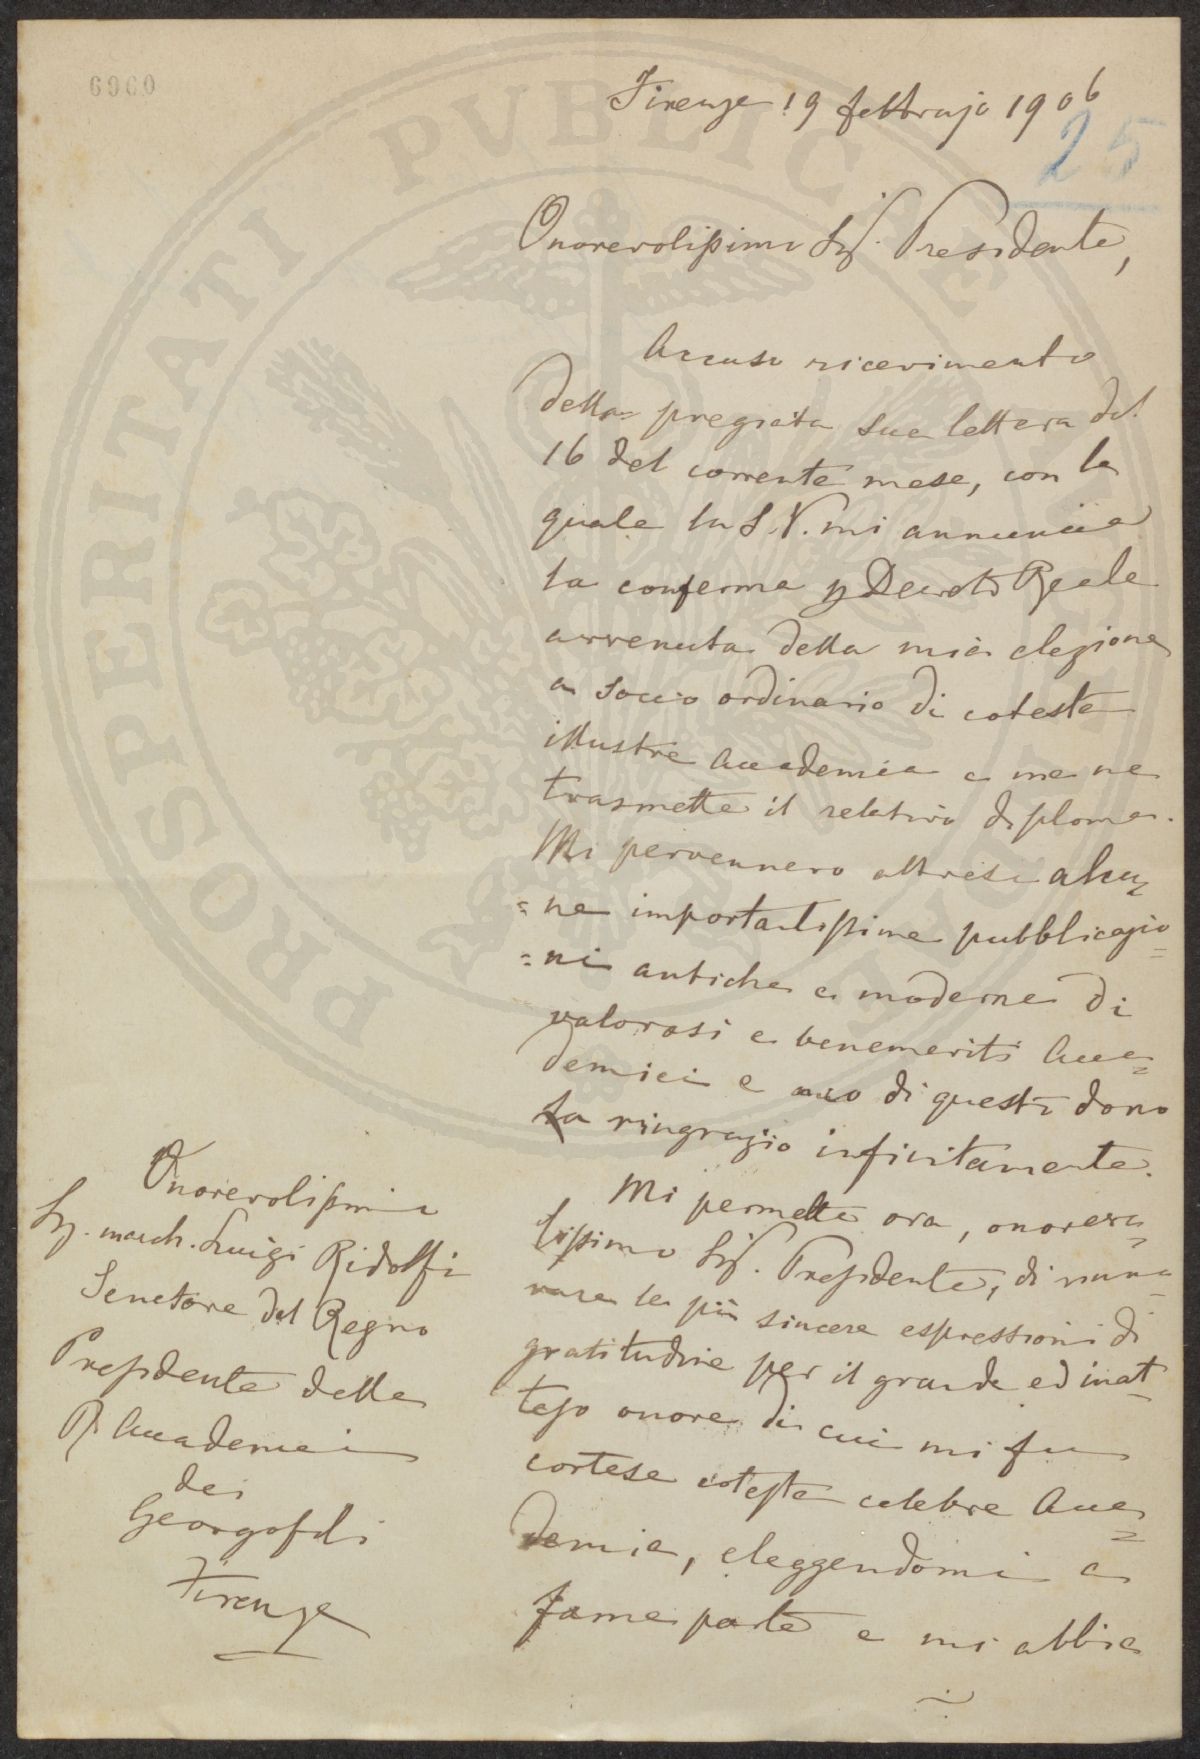 6960
Firenze 19 febbrajo 1906
25
Onorevolissimo Sig. Presidente,
Accuso ricevimento
della pregiata sua lettera del
16 del corrente mese, con la
quale la S. V. mi annuncia
la conferma p Decreto Reale
avvenuta della mia elezione
a socio ordinario di cotesta
illustre Accademia e me ne
trasmette il relativo diploma.
Mi pervennero altresì alcu=
=ne importantissime pubblicazio=
=ni antiche e moderne di
valorosi e benemeriti Acca=
demici e di questo dono
La ringrazio infinitamente.
Mi permetta ora, onorevo=
lissimo Sig. Presidente, di rinno=
vare le più sincere espressioni di
gratitudine per il grande ed inat=
teso onore di cui mi fu
cortese cotesta celebre Acca=
demia, eleggendomi a
farne parte e mi abbia
Onorevolissimo
Sig. march. Luigi Ridolfi
Senatore del Regno
Presidente della
R. Accademia
dei
Georgofili
Firenze
PROSPERITATI PVBLICAE AVGENDAE